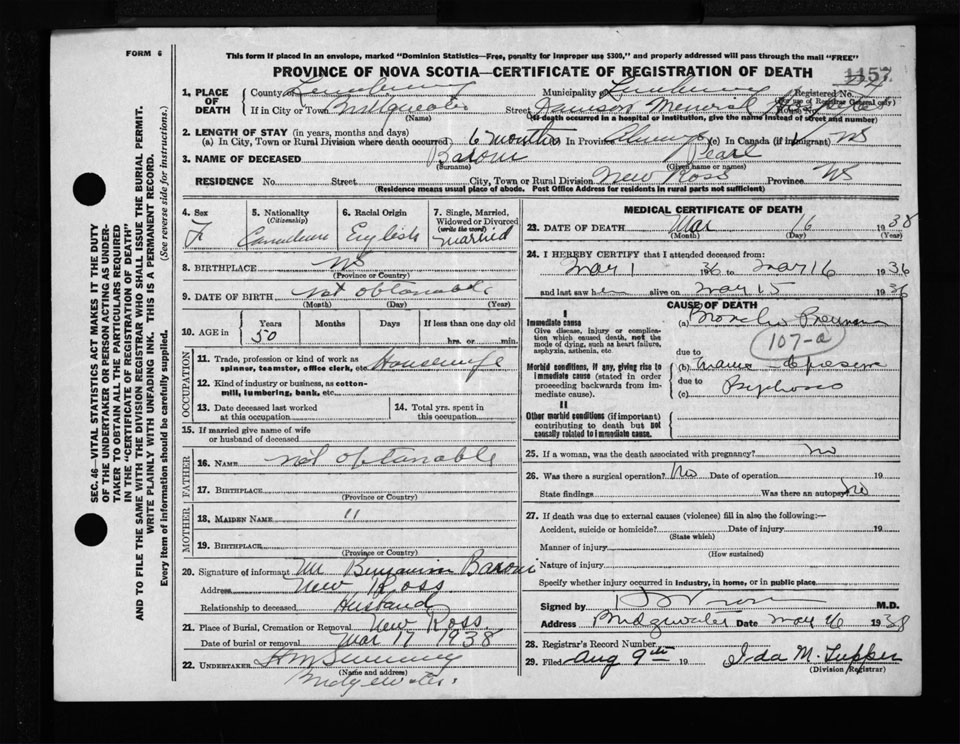 FORM 6
This form if placed in an envelope, marked "Dominion Statistics—Free, penalty for improper use $300," and properly addressed will pass through the mail "FREE"
PROVINCE OF NOVA SCOTIA—CERTIFICATE OF REGISTRATION OF DEATH
1157
SEC. 46—VITAL STATISTICS ACT MAKES IT THE DUTY
OF THE UNDERTAKER OR PERSON ACTING AS UNDER-
TAKER TO OBTAIN ALL THE PARTICULARS REQUIRED
IN THE "CERTIFICATE OF REGISTRATION OF DEATH"
AND TO FILE THE SAME WITH THE DIVISION REGISTRAR WHO SHALL ISSUE THE BURIAL PERMIT.
WRITE PLAINLY WITH UNFADING INK. THIS IS A PERMANENT RECORD.
Every item of information should be carefully supplied. (See reverse side for instructions.)
1. PLACE OF DEATH
County Lunenburg Municipality Lunenburg Registered No.
(For use of Registrar General only)
If in City or Town Bridgewater Street Memorial Hospital House No.
(Name) (If death occurred in a hospital or institution, give the name instead of street and number)
2. LENGTH OF STAY (in years, months and days)
(a) In City, Town or Rural Division where death occurred 6 months In Province Always (c) In Canada (if immigrant) NS
3. NAME OF DECEASED Pearl
(Surname) (Given name or names)
RESIDENCE No. Street City, Town or Rural Division New Ross Province NS
(Residence means usual place of abode. Post Office Address for residents in rural parts not sufficient)
4. Sex F
5. Nationality (Citizenship) Canadian
6. Racial Origin English
7. Single, Married, Widowed or Divorced (write the word) married
8. BIRTHPLACE NS
(Province or Country)
9. DATE OF BIRTH not obtanable
(Month) (Day) (Year)
10. AGE in Years 50 Months Days If less than one day old
hrs. or min.
OCCUPATION
11. Trade, profession or kind of work as spinner, teamster, office clerk, etc. Housewife
12. Kind of industry or business, as cotton-mill, lumbering, bank, etc.
13. Date deceased last worked at this occupation
14. Total yrs. spent in this occupation
15. If married give name of wife or husband of deceased
FATHER
16. NAME not optanable
17. BIRTHPLACE
(Province or Country)
MOTHER
18. MAIDEN NAME "
19. BIRTHPLACE
(Province or Country)
20. Signature of informant Mr Benjamin
Address New Ross
Relationship to deceased Husband
21. Place of Burial, Cremation or Removal New Ross
Date of burial or removal Mar 17 1938
22. UNDERTAKER
(Name and address)
Bridgewater
MEDICAL CERTIFICATE OF DEATH
23. DATE OF DEATH Mar 16 1938
(Month) (Day) (Year)
24. I HEREBY CERTIFY that I attended deceased from:
Mar 1 1936 to Mar 16 1936
and last saw h er alive on Mar 15 1936
CAUSE OF DEATH
I
Immediate cause
Give disease, injury or complication which caused death, not the mode of dying, such as heart failure, asphyxia, asthenia, etc.
(a) Broncho Pneumonia
107-a
Morbid conditions, if any, giving rise to immediate cause (stated in order proceeding backwards from immediate cause).
due to
(b) Manic Depressive
due to
(c) Psychosis
II
Other morbid conditions (if important) contributing to death but not causally related to immediate cause.
25. If a woman, was the death associated with pregnancy? no
26. Was there a surgical operation? No Date of operation 19
State findings Was there an autopsy No
27. If death was due to external causes (violence) fill in also the following:—
Accident, suicide or homicide? Date of injury 19
(State which)
Manner of injury
(How sustained)
Nature of injury
Specify whether injury occurred in industry, in home, or in public place
Signed by M.D.
Address Bridgewater Date 1938
28. Registrar's Record Number
29. Filed Aug 9th 19 Ida M. Tupper
(Division Registrar)